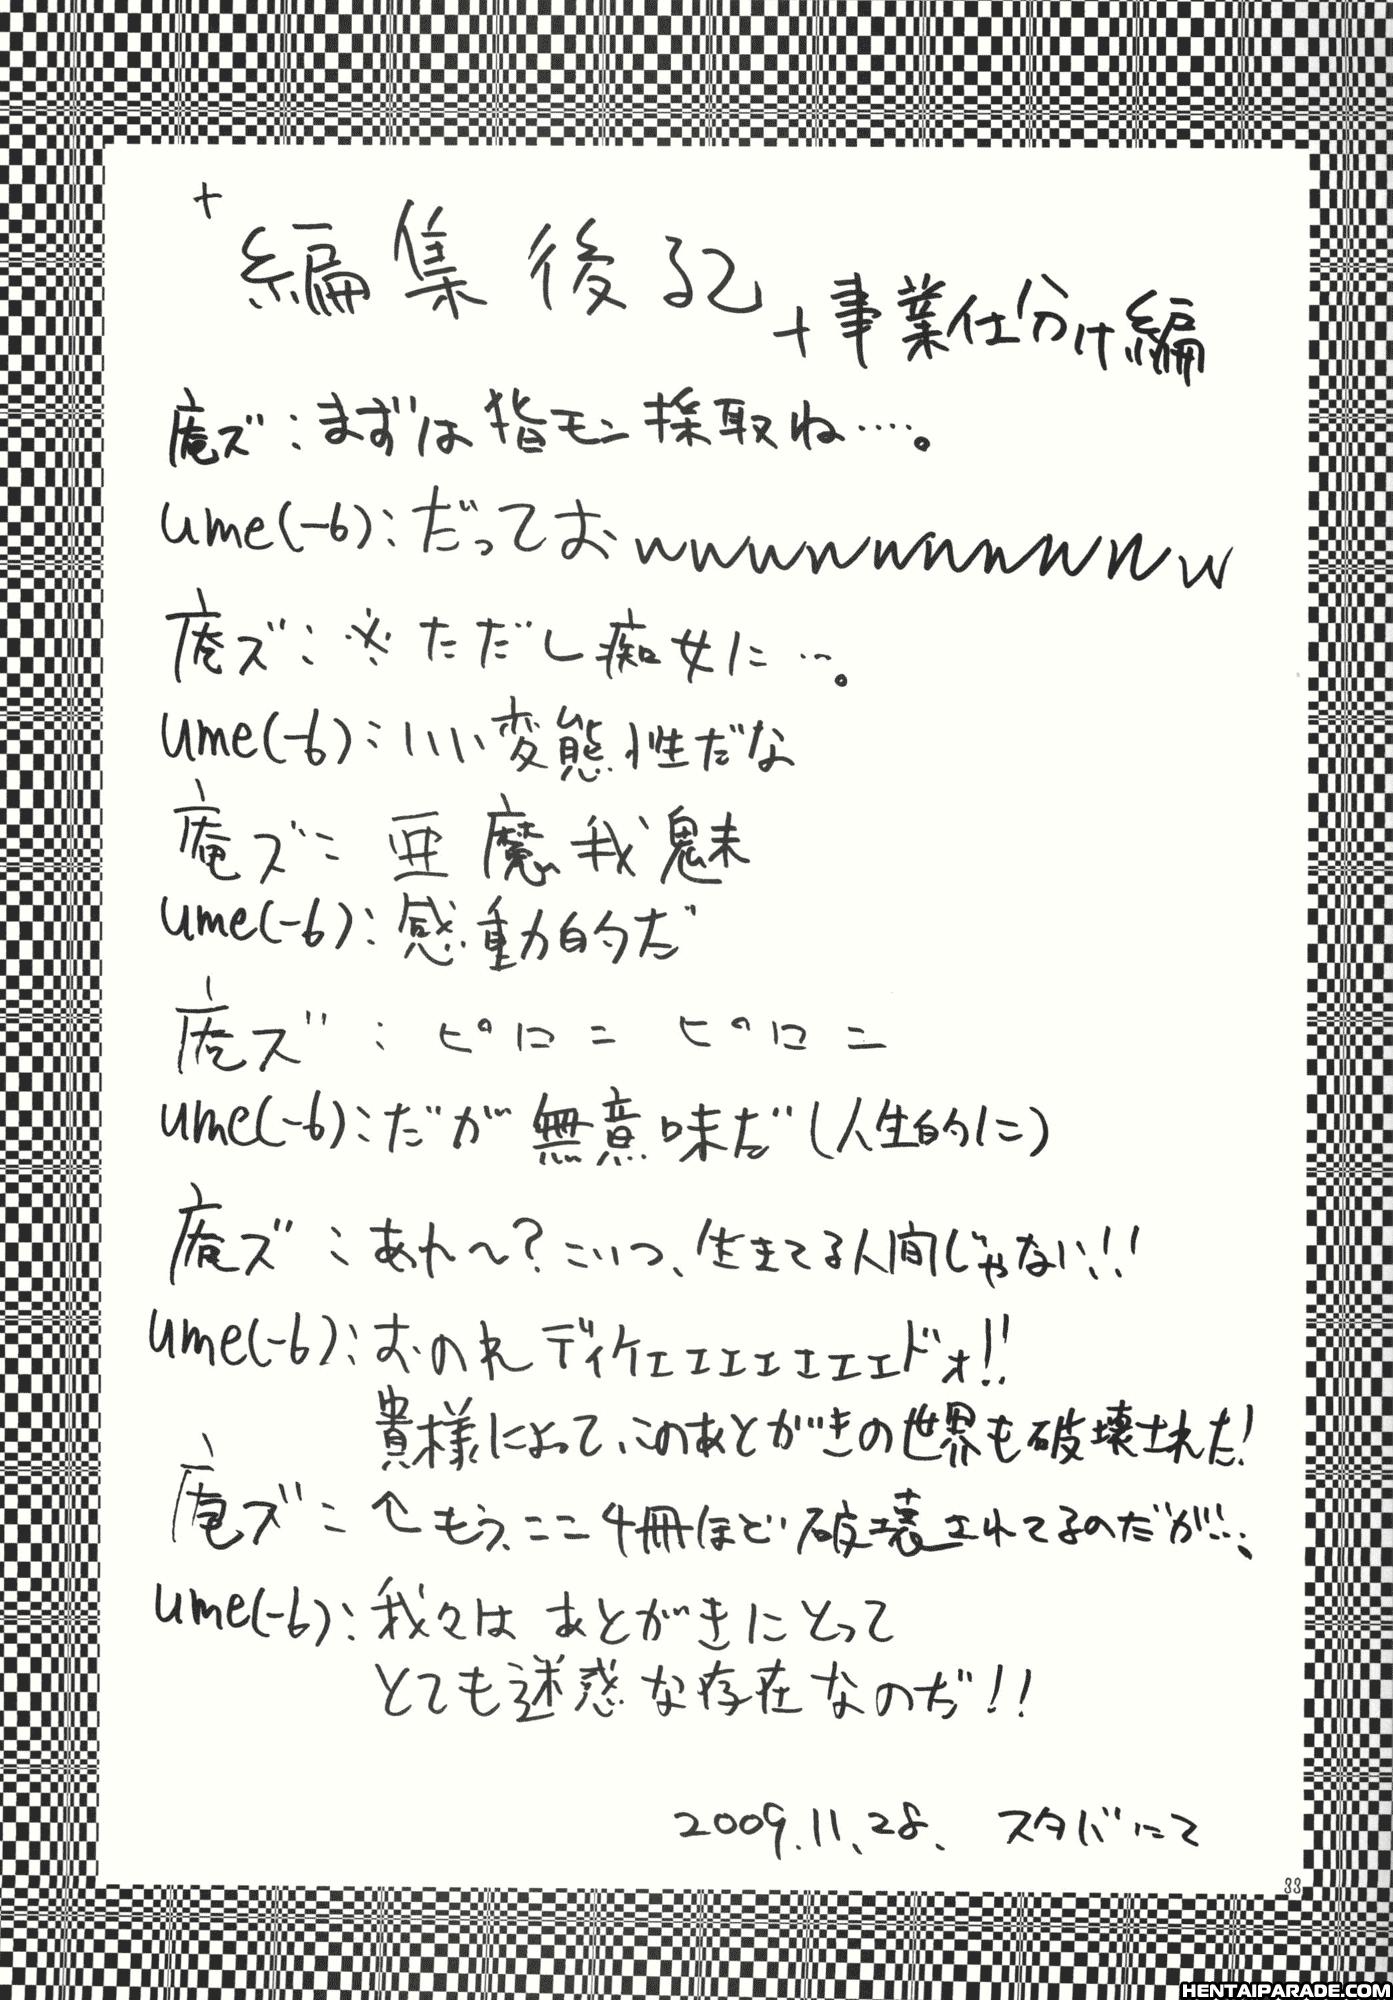 +
編集後記
+事業仕分け編
庵ズ:まずは指モン採取ね…。
ume(-6):だっておwwwwwwwwwwww
庵ズ:※ただし痴女に…。
ume(-6):いい変態性だな
庵ズ:亜魔我魅
ume(-6):感動的だ
庵ズ:ピロニ ピロニ
ume(-6):だが無意味だ(人生的に)
庵ズ:あれ〜?こいつ、生きてる人間じゃない!!
ume(-6):おのれディケェェェェェェェドォ!!
貴様によって、このあとがきの世界も破壊された!
庵ズ:↑もう、ここ4冊ほど破壊されてるのだが…、
ume(-6):我々はあとがきにとって
とても迷惑な存在なのぢ!!
2009.11.28. スタバにて
33
HENTAIPARADE.COM